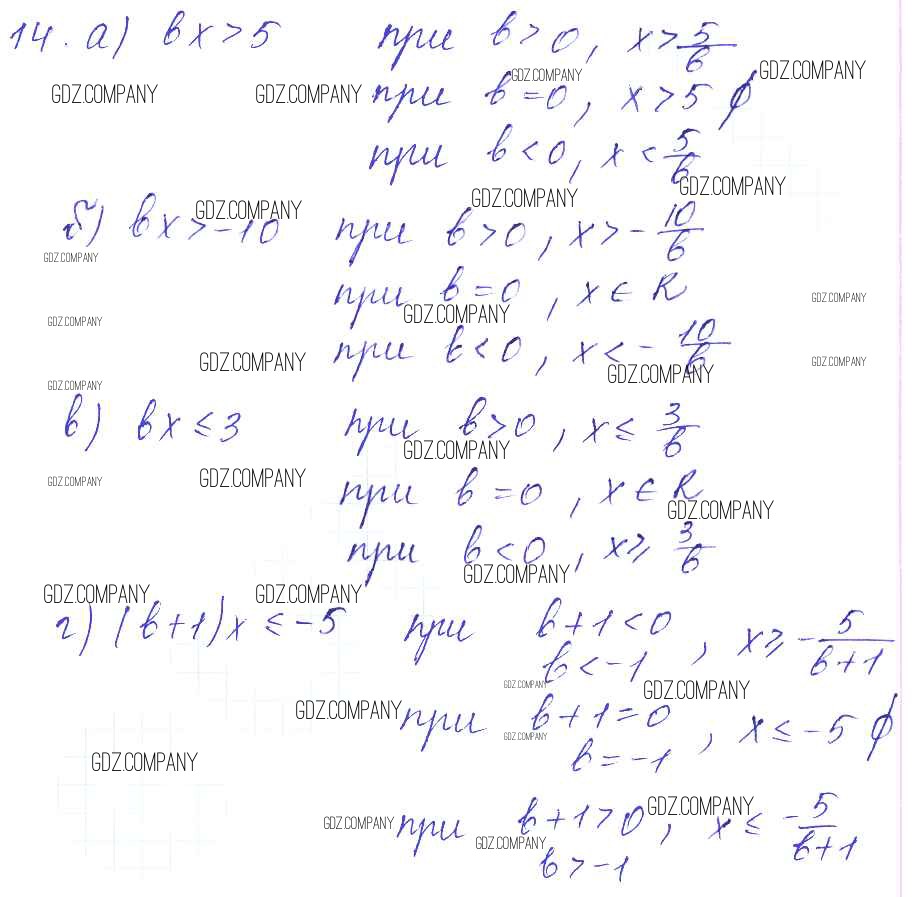 14. а) bx > 5 при b > 0, x > 5/b
GDZ.COMPANY GDZ.COMPANY GDZ.COMPANY GDZ.COMPANY
при b = 0, x > 5 ∅
при b < 0, x < 5/b
GDZ.COMPANY GDZ.COMPANY GDZ.COMPANY
б) bx > -10 при b > 0, x > -10/b
GDZ.COMPANY
при b = 0, x ∈ R
GDZ.COMPANY GDZ.COMPANY GDZ.COMPANY
при b < 0, x < -10/b
GDZ.COMPANY GDZ.COMPANY GDZ.COMPANY GDZ.COMPANY
в) bx ≤ 3 при b > 0, x ≤ 3/b
GDZ.COMPANY
при b = 0, x ∈ R
GDZ.COMPANY GDZ.COMPANY GDZ.COMPANY
при b < 0, x ≥ 3/b
GDZ.COMPANY GDZ.COMPANY GDZ.COMPANY
г) (b+1)x ≤ -5 при b+1 < 0, x ≥ -5/(b+1)
b < -1
GDZ.COMPANY GDZ.COMPANY GDZ.COMPANY
при b+1 = 0, x ≤ -5 ∅
GDZ.COMPANY
b = -1
GDZ.COMPANY
при b+1 > 0, x ≤ -5/(b+1)
GDZ.COMPANY GDZ.COMPANY GDZ.COMPANY
b > -1